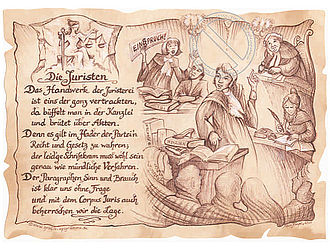 EINSPRUCH!
Die Juristen
Das Handwerk der Juristerei
ist eins der ganz vertrackten,
da büffelt man in der Kanzlei
und brütet über Akten.
Denn es gilt im Hader der Partei'n
Recht und Gesetz zu wahren;
der leidge Schriftkram muss wohl sein
genau wie mündliche Verfahren.
Der Paragraphen Sinn und Brauch
ist klar uns ohne Frage
und mit dem Corpus Juris auch
beherrschen wir die Lage.